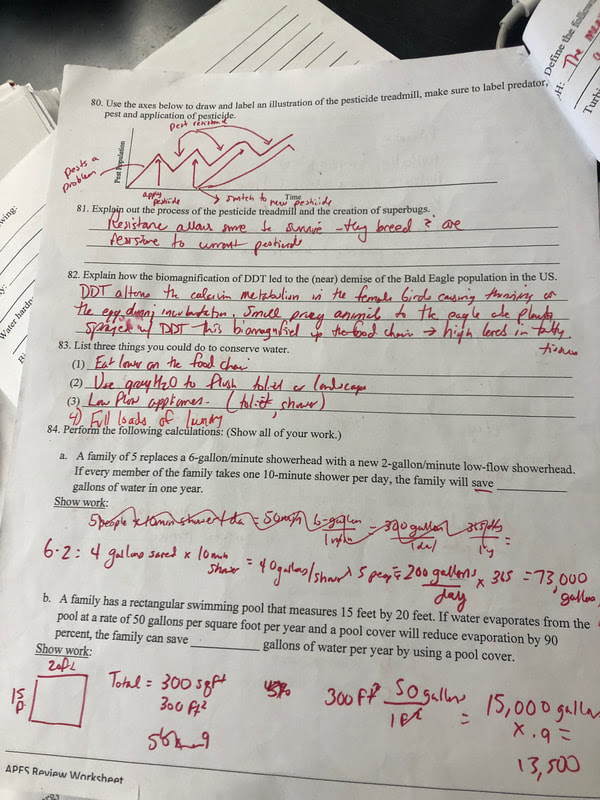 Define the following
pH: The mea
Turbi
wing:
Water hardn
80. Use the axes below to draw and label an illustration of the pesticide treadmill, make sure to label predator,
pest and application of pesticide.
pest resistant
Pests a
problem
Pest Population
apply
pesticide
Time
switch to new pesticide
81. Explain out the process of the pesticide treadmill and the creation of superbugs.
Resistance allow some to survive - they breed & are
resistance to current pesticide
82. Explain how the biomagnification of DDT led to the (near) demise of the Bald Eagle population in the US.
DDT alters the calcium metabolism in the female birds causing thinning of
the egg during incubation. Small prey animals to the eagle ate plants
sprayed w/ DDT this biomagnified up the food chain → high levels in fatty
tissues
83. List three things you could do to conserve water.
(1) Eat lower on the food chain
(2) Use gray H2O to flush toliet or landscape
(3) Low flow appliances - (toliet, shower)
4) Full loads of laundry
84. Perform the following calculations: (Show all of your work.)
a. A family of 5 replaces a 6-gallon/minute showerhead with a new 2-gallon/minute low-flow showerhead.
If every member of the family takes one 10-minute shower per day, the family will save
gallons of water in one year.
Show work:
5 people x 10 min shower = 50 min 6-gallon = 300 gallon 365 days =
1 min 1 day 1 y
6-2 = 4 gallons saved x 10 min shower = 40 gallons/shower x 5 peop = 200 gallons/day x 365 = 73,000 gallons
b. A family has a rectangular swimming pool that measures 15 feet by 20 feet. If water evaporates from the
pool at a rate of 50 gallons per square foot per year and a pool cover will reduce evaporation by 90
percent, the family can save gallons of water per year by using a pool cover.
Show work:
20ft
15 ft
Total = 300 sqft
300 ft²
300 ft² 50 gallons = 15,000 gallon
1 ft²
x .9 =
13,500
APES Review Worksheet